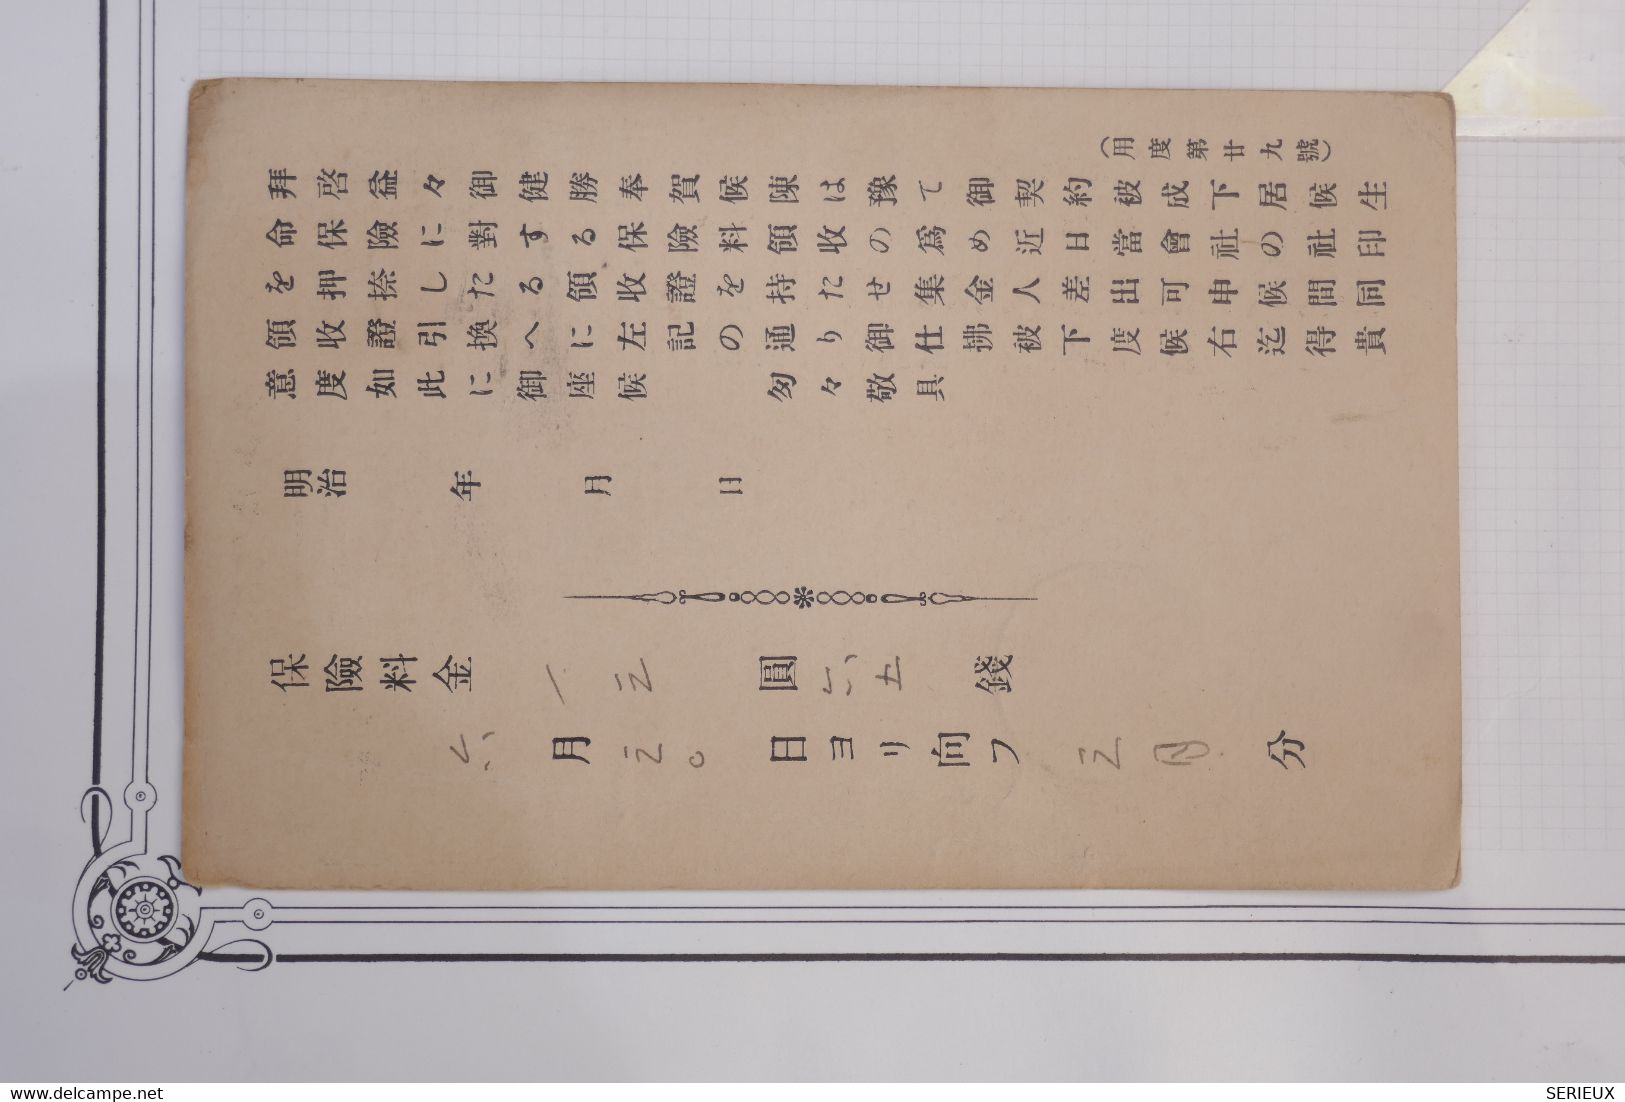 (用度第廿九號)
拝啓益々御健勝奉賀候陳は豫て御契約被成下居候生
命保險に對する保險料領收の爲め近日當會社の社印
を押捺したる領收證を持たせ集金人差出可申候間同
領收證引換へに左記の通り御仕拂被下度候右迄得貴
意度如此に御座候 匆々敬具
明治 年 月 日
保險料金 一三 圓 六五 錢
六 月 三〇 日ヨリ向フ 三月 分
delcampe.net
SERIEUX